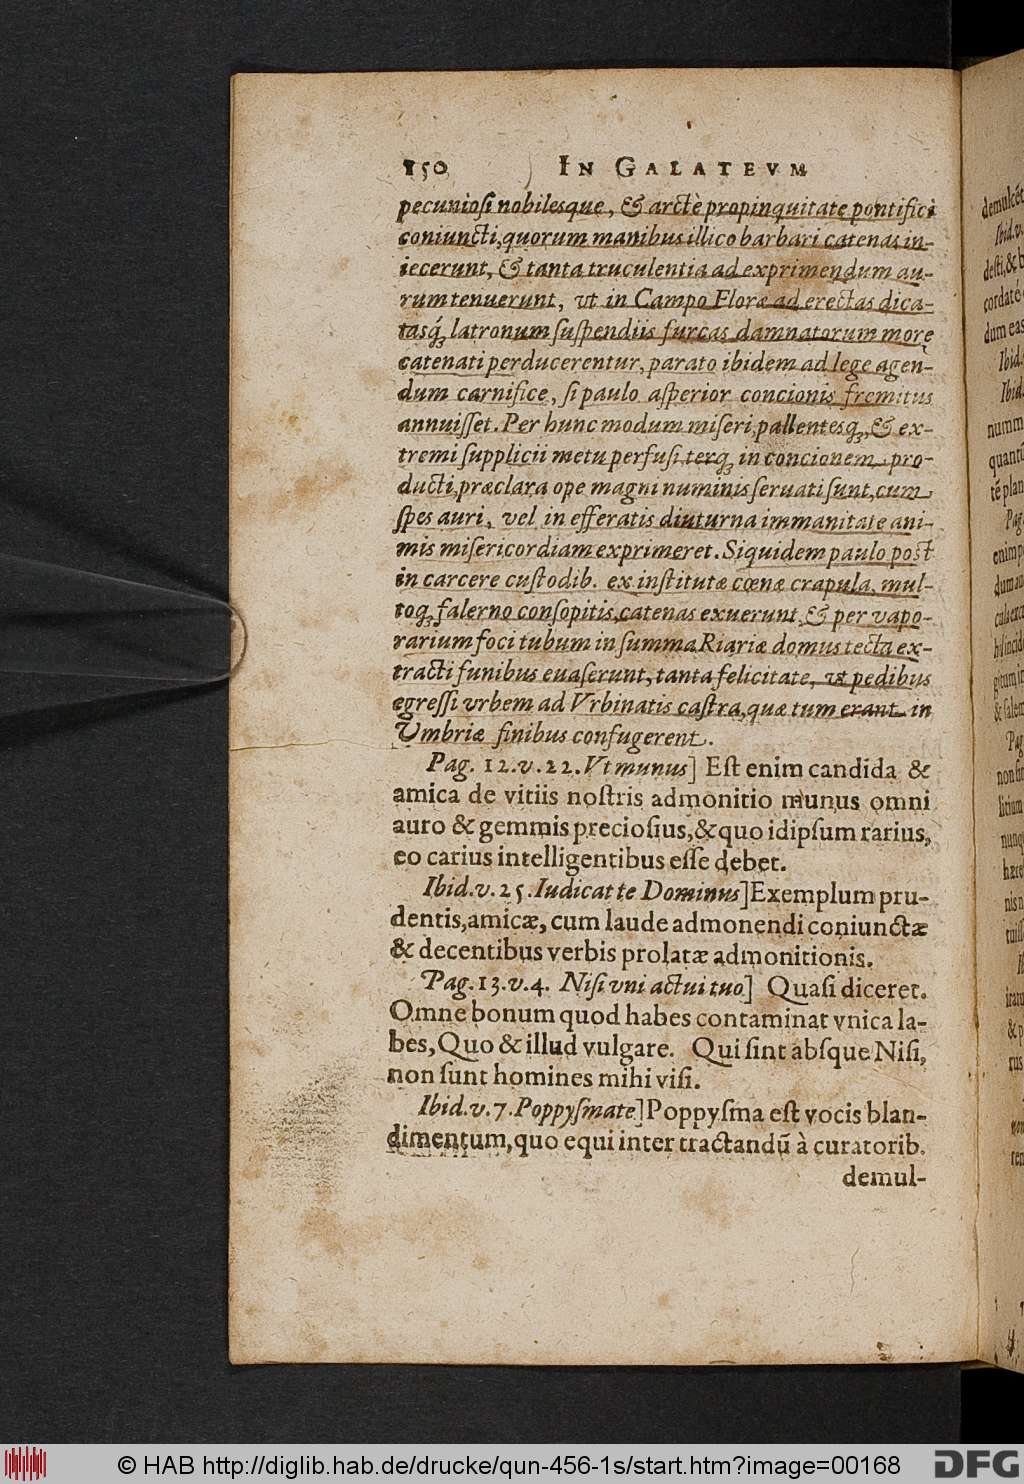 150 IN GALATEVM
pecuniosi nobilesque, & arctè propinquitate pontifici
coniuncti, quorum manibus illico barbari catenas in-
iecerunt, & tanta truculentia ad exprimendum au-
rum tenuerunt, vt in Campo Floræ ad erectas dica-
tasq́; latronum suspendiis furcas damnatorum more
catenati perducerentur, parato ibidem ad lege agen-
dum carnifice, si paulo asperior concionis fremitus
annuisset. Per hunc modum miseri pallentesq;, & ex-
tremi supplicii metu perfusi terq; in concionem pro-
ducti, præclara ope magni numinis seruati sunt, cum
spes auri, vel in efferatis diuturna immanitate ani-
mis misericordiam exprimeret. Siquidem paulo post
in carcere custodib. ex institutæ cœnæ crapula, mul-
toq; falerno consopitis, catenas exuerunt, & per vapo-
rarium foci tubum in summa Riariæ domus tecta ex-
tracti funibus euaserunt, tanta felicitate, vt pedibus
egressi vrbem ad Vrbinatis castra, quæ tum erant in
Vmbriæ finibus confugerent.
Pag. 12. v. 22. Vt munus] Est enim candida &
amica de vitiis nostris admonitio munus omni
auro & gemmis preciosius, & quo id ipsum rarius,
eo carius intelligentibus esse debet.
Ibid. v. 25. Iudicat te Dominus] Exemplum pru-
dentis, amicæ, cum laude admonendi coniunctæ
& decentibus verbis prolatæ admonitionis.
Pag. 13. v. 4. Nisi vni actui tuo] Quasi diceret.
Omne bonum quod habes contaminat vnica la-
bes, Quo & illud vulgare. Qui sint absque Nisi,
non sunt homines mihi visi.
Ibid. v. 7. Poppysmate] Poppysma est vocis blan-
dimentum, quo equi inter tractandũ à curatorib.
demul-
© HAB http://diglib.hab.de/drucke/qun-456-1s/start.htm?image=00168
DFG